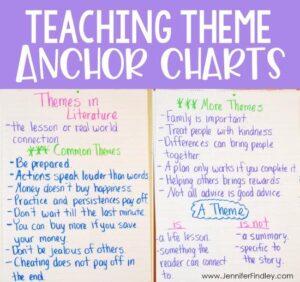 TEACHING THEME
ANCHOR CHARTS
Themes in
Literature
-the lesson or real world
connection
Common Themes
- Be prepared
- Actions speak louder than words
- Money doesn't buy happiness
- Practice and persistence pays off
- Don't wait till the last minute
- You can buy more if you save
your money.
- Don't be jealous of others.
- Cheating does not pay off in
the end.
More Themes
- Family is important
- Treat people with kindness
- Differences can bring people
together
- A plan only works if you complete it
- Helping others brings rewards
- Not all advice is good advice
A Theme
is
a life lesson.
-something the
reader can connect
to.
is not
- a summary.
- specific to
the story.
www.JenniferFindley.com